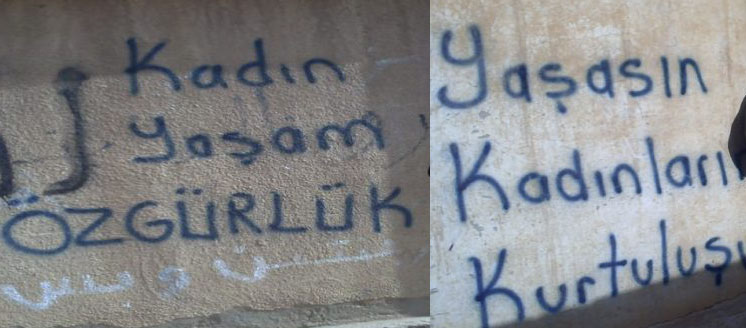 Kadın
Yaşam
ÖZGÜRLÜK
Yaşasın
Kadınların
Kurtuluşu